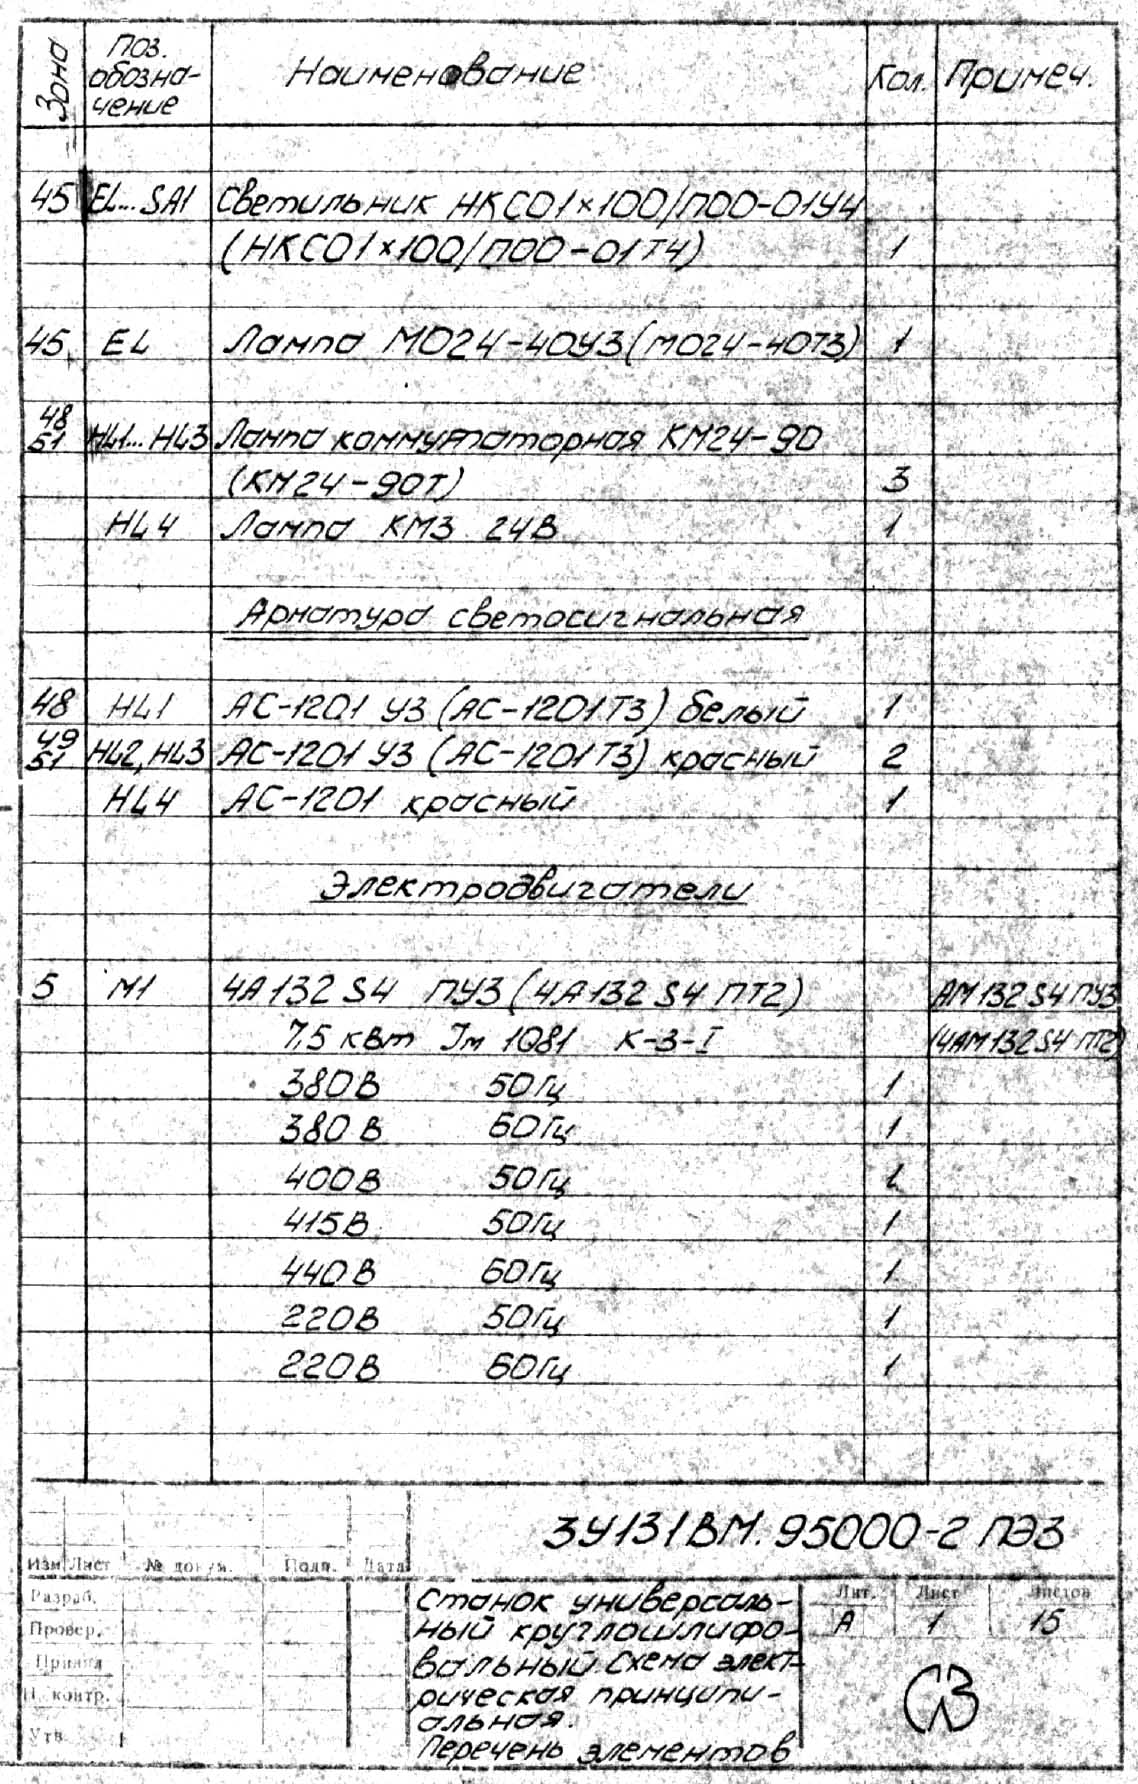 Зона Поз. обозна-чение Наименование Кол. Примеч.
45 EL...SA1 Светильник НКСО1×100/П00-01У4
(НКСО1×100/П00-01Т4) 1
45 EL Лампа МО24-40У3(МО24-40Т3) 1
48
51 HL1...HL3 Лампа коммутаторная КМ24-90
(КМ24-90Т) 3
HL4 Лампа КМ3 24В 1
Арматура светосигнальная
48 HL1 АС-1201 У3 (АС-1201Т3) белый 1
49
51 HL2,HL3 АС-1201 У3 (АС-1201Т3) красный 2
HL4 АС-1201 красный 1
Электродвигатели
5 М1 4А132S4 ПУ3 (4А132S4 ПТ2) АМ132S4 ПУ3
7,5 кВт Jм 1081 К-3-I (4АМ132S4 ПТ2)
380В 50Гц 1
380В 60Гц 1
400В 50Гц 1
415В 50Гц 1
440В 60Гц 1
220В 50Гц 1
220В 60Гц 1
3У131ВМ.95000-2 ПЭ3
Изм Лист № докум. Подп. Дата
Разраб.
Провер.
Н. контр.
Утв.
Станок универсаль-
ный круглошлифо-
вальный. Схема элект-
рическая принципи-
альная.
Перечень элементов
Лит. Лист Листов
А 1 15